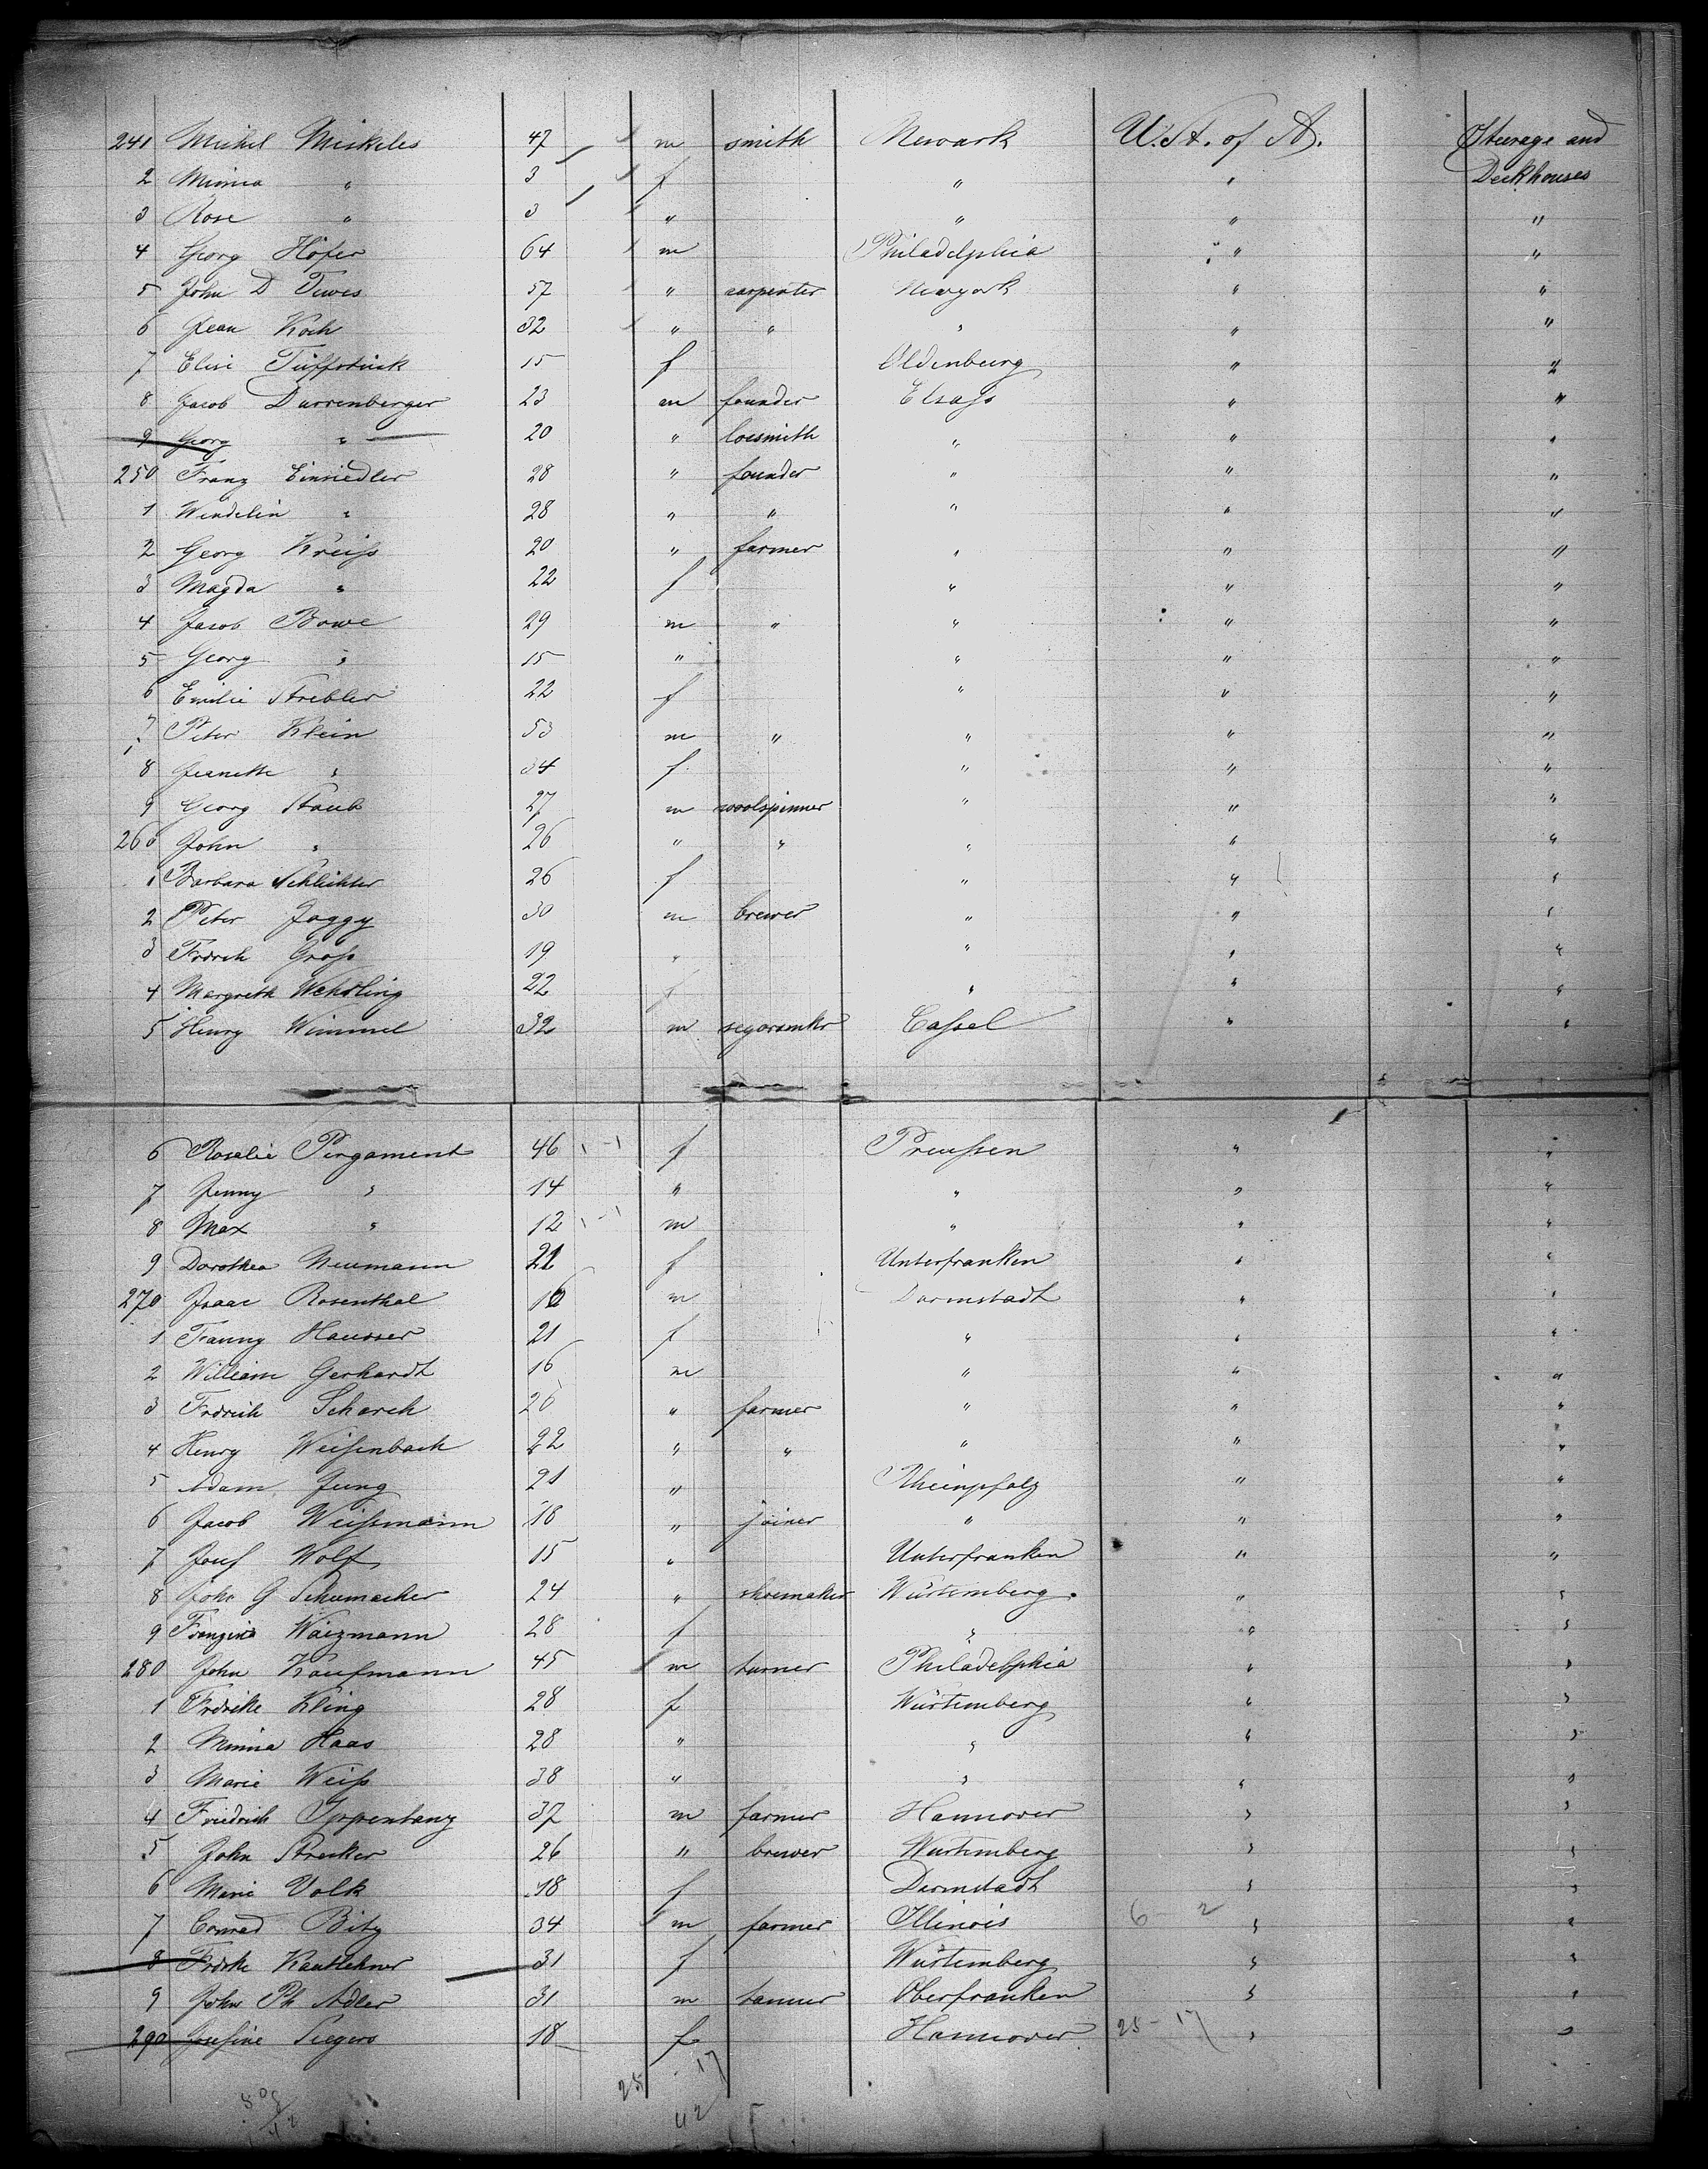 241 Michel Miskeles 47 m smith Newark U. St. of A. Steerage and
2 Minna " 3 f " " Deckhouses
3 Rose " 3 " " " "
4 Georg Höfer 64 m Philadelphia " "
5 John D Tewes 57 " carpenter Newyork " "
6 Jean Koch 32 " " " " "
7 Elise 15 f Oldenburg " "
8 Jacob Durrenberger 23 m founder Elsaß " "
9 Georg " 20 " locsmith " " "
250 Franz Einsiedler 28 " founder " " "
1 Wendelin " 28 " " " " "
2 Georg Kreiß 20 " farmer " " "
3 Magda " 22 f " " "
4 Jacob Bowe 29 m " " " "
5 Georg " 15 " " " "
6 Emilie Strebler 22 f " " "
7 Peter Klein 53 m " " " "
8 Jeanette " 34 f " " "
9 Georg Staub 27 m woolspinner " " "
260 John " 26 " " " " "
1 Barbara Schlichter 26 f " " "
2 Peter Jaggy 30 m brewer " " "
3 Fdrch Groß 19 " " " "
4 Margreth Wehdling 22 f " " "
5 Henry Wimmel 32 m segaramkr Caßel " "
6 Rosalie Pergament 46 f Preußen " "
7 Jenny " 14 " " " "
8 Max " 12 m " " "
9 Dorothea Neumann 21 f Unterfranken " "
270 Isaac Rosenthal 16 m Darmstadt " "
1 Fanny Hausser 21 f " " "
2 William Gerhardt 16 m " " "
3 Fdrich Scharch 26 " farmer " " "
4 Henry Weißenbach 22 " " " " "
5 Adam Jung 21 " Rheinpfalz " "
6 Jacob Weißmann 18 " joiner " " "
7 Josef Wolf 15 " Unterfranken " "
8 John G Schumacher 24 " shoemaker Würtemberg " "
9 Franziska Waizmann 28 f " " "
280 John Kaufmann 45 m turner Philadelphia " "
1 Fdrike Kling 28 f Würtemberg " "
2 Minna Haas 28 " " " "
3 Marie Weiß 38 " " " "
4 Friedrich Ippentanz 37 m farmer Hannover " "
5 John Strecker 26 " brewer Würtemberg " "
6 Marie Volk 18 f Darmstadt " "
7 Conrad Bitz 34 m farmer Illinois 6 - 2 " "
8 Fdrke Kautlehner 31 f Würtemberg " "
9 John Ph Adler 31 m tanner Oberfranken " "
290 Josefine Siegers 18 f Hannover 25 - 17 " "
25 17
42